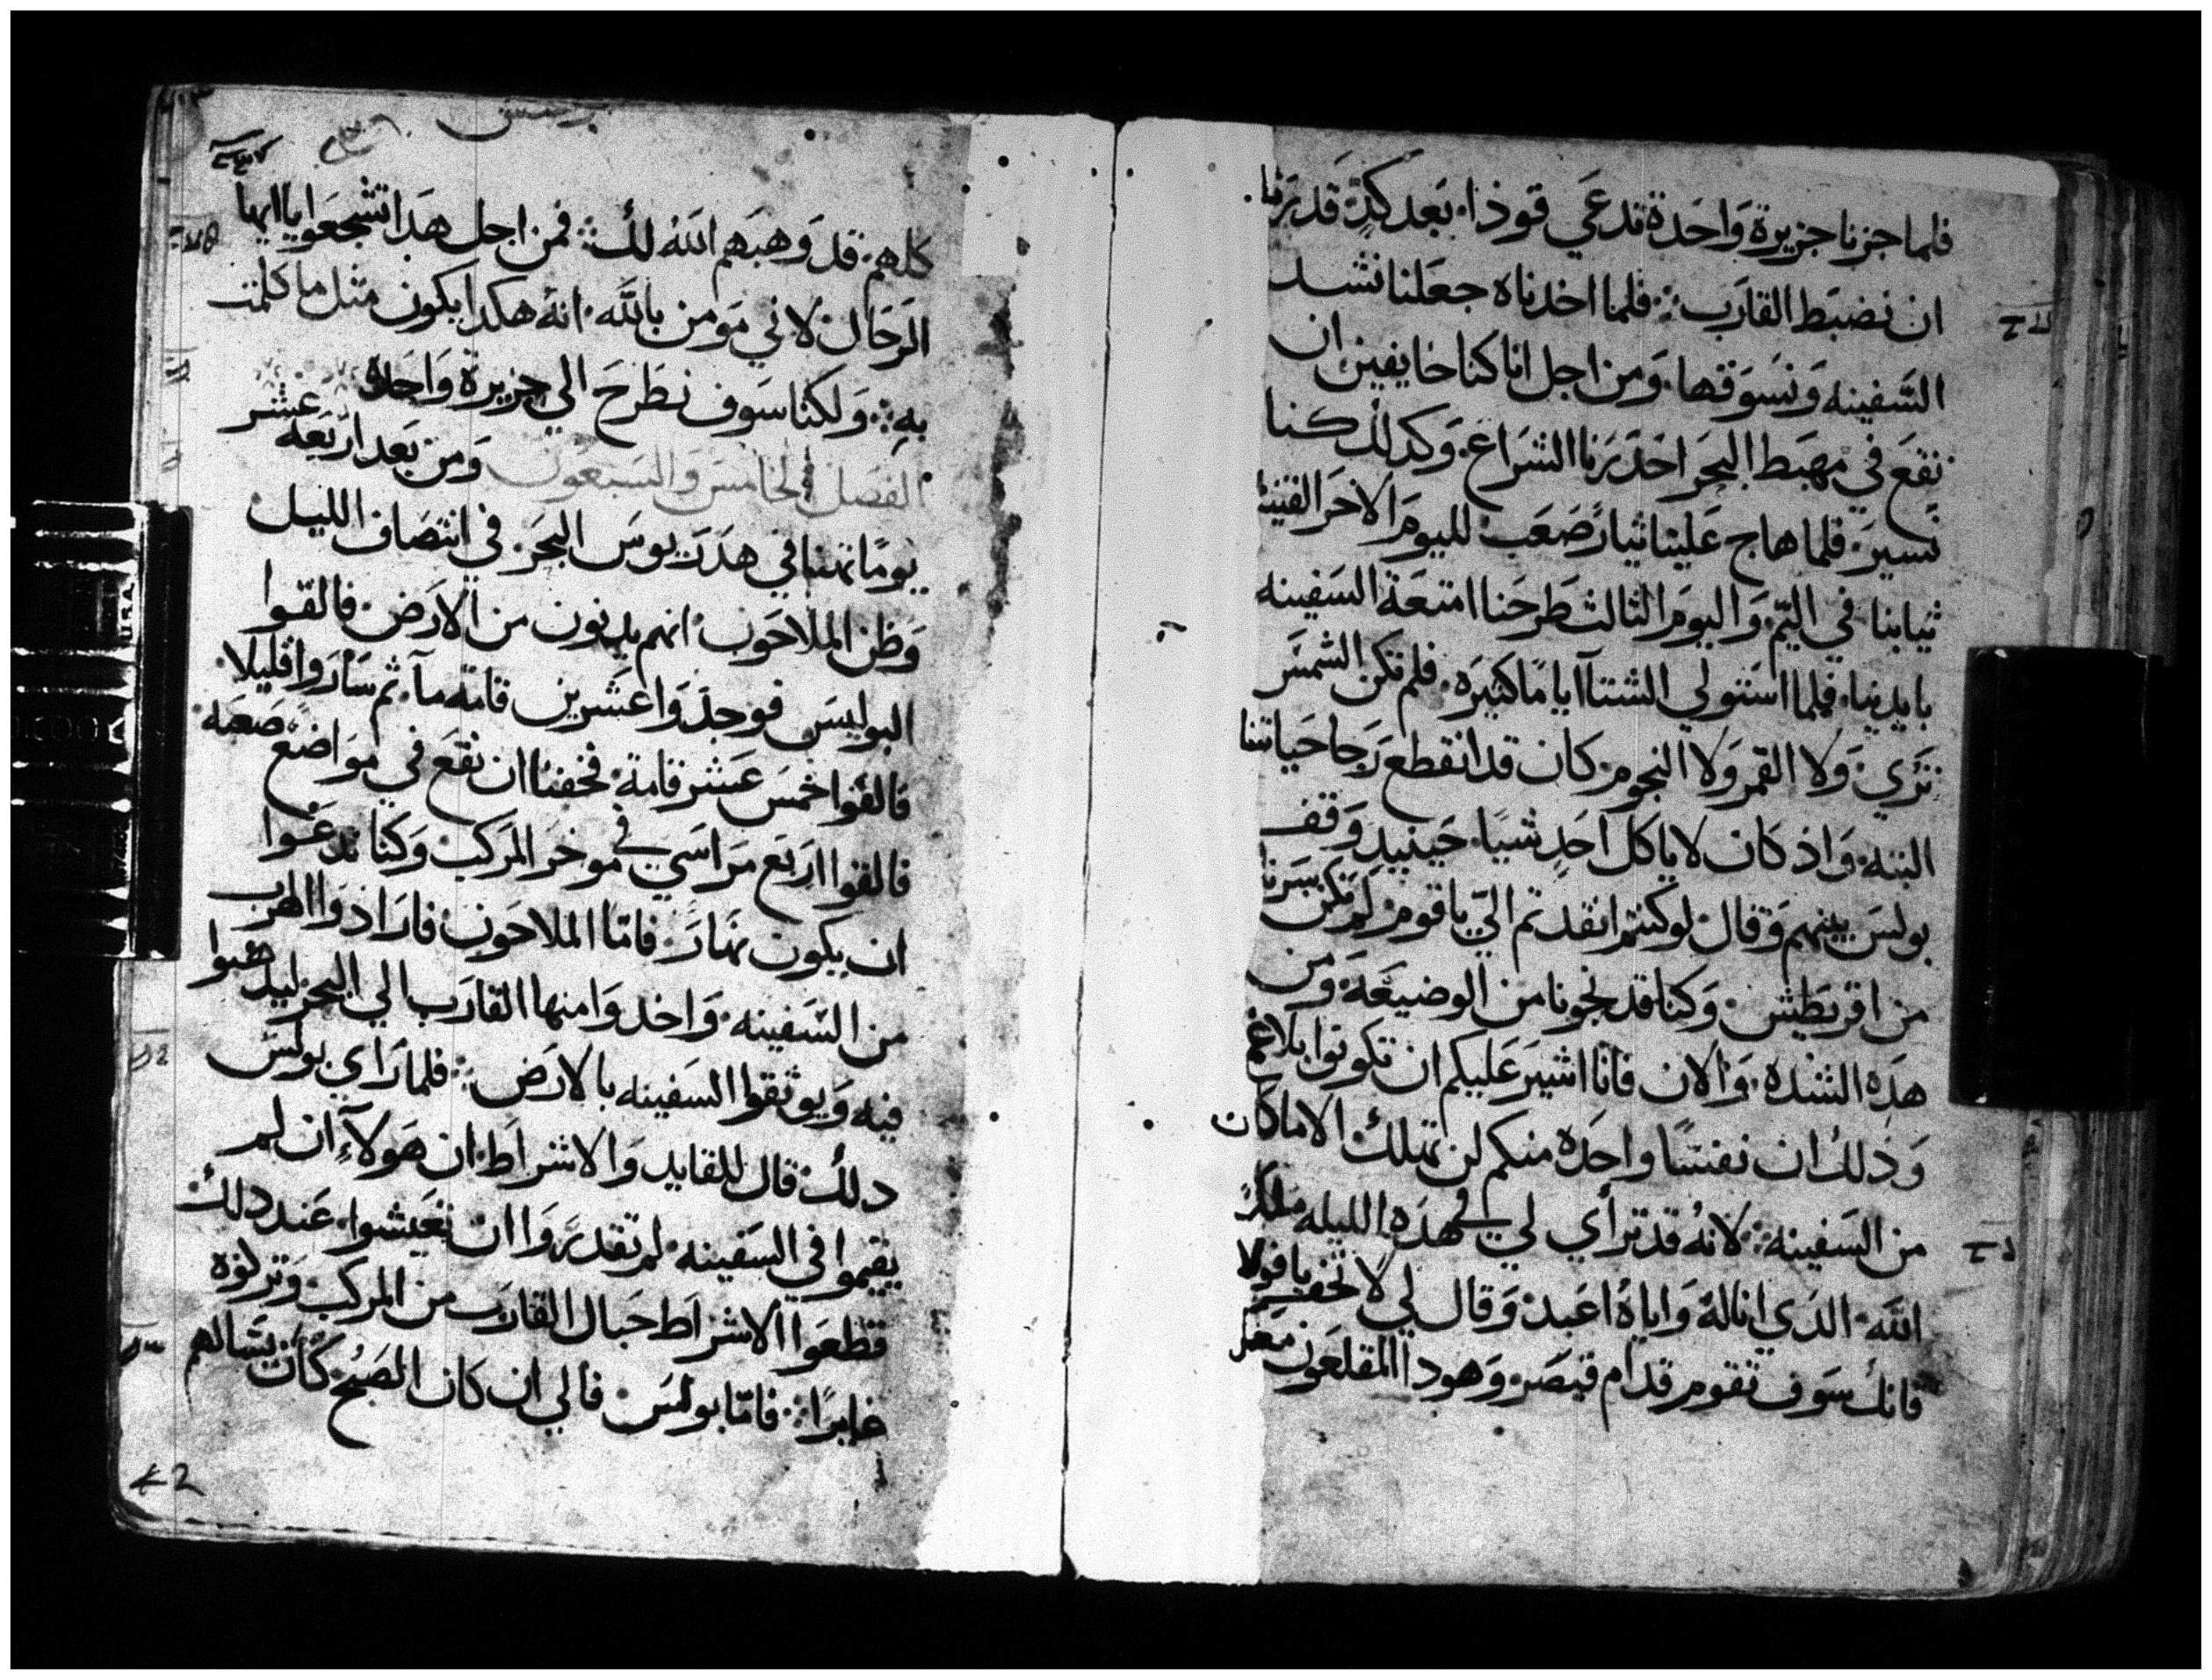 فلما جزنا جزيرة وَاحَدة تدعَي قوذا. بَعد كدٍ قد برَنا
ان نضبَط القارَب ⁘ فلما اخدناه جعَلنا نشد
السَفينه وَنسَوَقها. وَمن اجل انا كنا خايفين ان
نقعَ في مهبَط البحَر احَدَرَنا الشرَاعَ. وَكدلك كنا
نَسيرَ. فلما هاج عَلينا تيارً صَعَب لليومَ الاخرَ القينا
ثيابنا في اليَم. وَاليومَ الثالث طَرحَنا امتعَة السَفينه
بايدينا. فلما استولي الشتآ اياما كثيرَه. فلم تكن الشمسَ
ترَي. وَلا القمر وَلا النجومَ. كان قد انقطع رَجا حَياتنا
البته. وَاذ كان لا ياكل احَدٍ شيَا. حَينيدٍ وَقف
بولسَ بينهم وَقال لو كنتم انقدتم اليَ ياقومَ لم نكن سَرنا
من اقريَطيش. وَكنا قد نجونا من الوضيعَة وَمن
هدَه الشده. وَالان فانا اشيرَ عَليكم ان تكونوا بلا غم
وَذلك ان نفسًا واحَدَه منكم لن تهلك الا ما كان
من السَفينه ⁘ لانهُ قد ترَأي لي في هَدَه الليله ملاك
الله. الدَي انا لهُ وَاياهُ اعَبد. وَقال لي لا تخف يا فولا
فانك سَوَف تقومَ قدام قيصَر. وَهودا المقلعَون معَك
كلهم. قد وَهبَهم الله لك ⁘ فمن اجل هَدَا تشجعَوا يا ايها
الرَجَال. لاني مَومن بالله. انهُ هكدا يكون مثل ما كلمت
بهِ ⁘ وَلكنا سَوف نطَرحَ الي جزيرة وَاحَده
الفصَل الخامسَ وَالسَبعَون وَمن بَعد اربَعَه عشر
يومًا تهنا في هَدَرَيوسَ البحَرَ. في انتصَاف الليل
وَظن الملاحَون. انهم يدنون من الارَض. فالقوا
البوليسَ فوجدَوَا عَشرَين قامَه مآ. ثم سَارَوا قليلا.
فالقوا خمسَ عَشر قامَة. فخفنا ان نقعَ في مَوَاضع صَعَبه.
فالقوا اربَع مرَاسَي في موخرَ المرَكب. وَكنا ندعَوا
ان يكون نهَارَ. فامّا الملاحَون. فارَادوَا الهرَب
من السَفينه. وَاخدوَا منها القارَب الي البحَر ليدهَبوا
فيه وَيوثقوا السَفينه بالارَض ⁘ فلما رَاي بولسَ
دلك. قال للقايد وَالاشرَاطَ. ان هَولآءِ ان لم
يقيموا في السَفينه. لم تقدرَوَا ان تعَيشوا. عَند دلك
قطعَوا الاشرَاطَ حَبال القارَب من المرَكب وَترَكوَه
غايرَا ⁘ فامّا بولسَ. فالي ان كان الصَبُح. كان يسَالهم